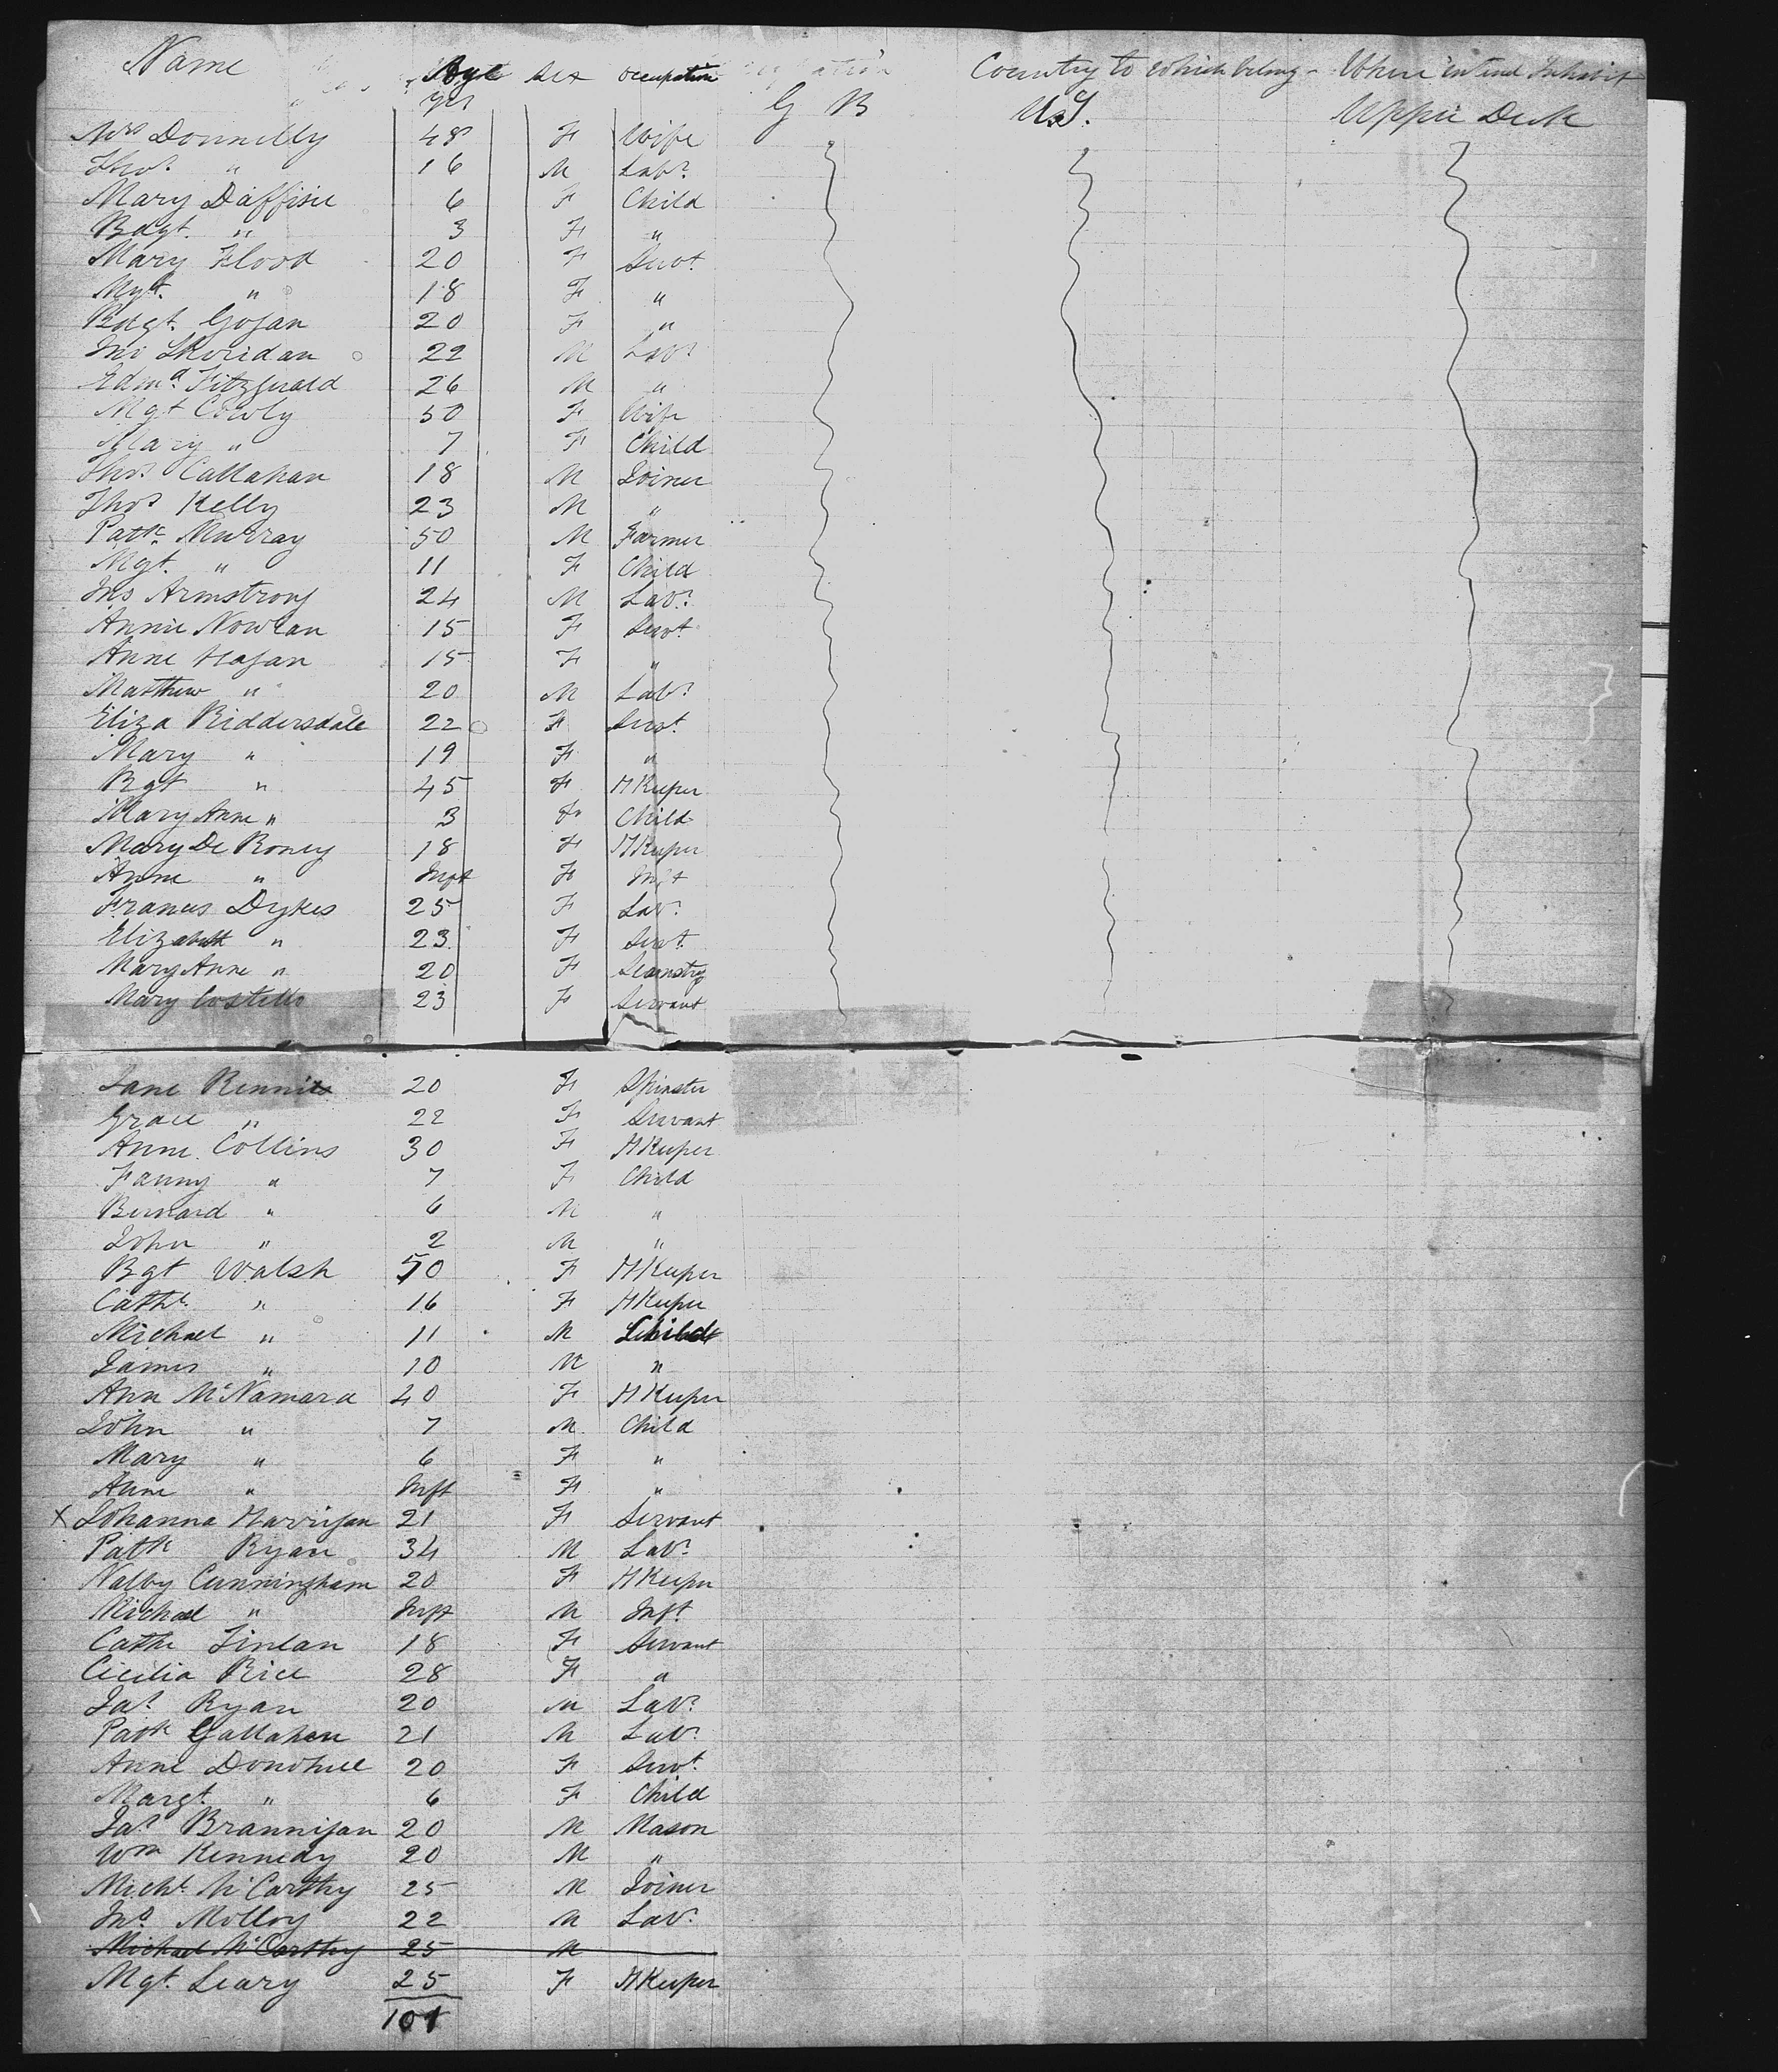 Name Age Sex Occupation Country to which belong - Where intend Inhabit
yrs G B U.S. Upper Deck
Mrs Donnelly 48 F Wife
Thos. " 16 M Labr
Mary 6 F Child
Bdgt. " 3 F "
Mary Flood 20 F Servt
Mgt. " 18 F "
Bdgt. Gogan 20 F "
Jno Sheridan 22 M Labr
Edmd. Fitzgerald 26 M "
Mgt Cowly 50 F Wife
Mary " 7 F Child
Thos. Callahan 18 M Joiner
Thos Kelly 23 M "
Patk. Murray 50 M Farmer
Mgt. " 11 F Child
Jno Armstrong 24 M Labr
Annie Nowlan 15 F Servt
Anne Hogan 15 F "
Matthew " 20 M Labr
Eliza Riddersdale 22 F Servt
Mary " 19 F "
Bgt " 45 F HKeeper
Mary Anne " 3 F Child
Mary De Roney 18 F HKeeper
Anne " Inft F Inft
Frances Dykes 25 F Labr
Elizabeth " 23 F Servt
Mary Anne " 20 F
Mary Costello 23 F Servant
Jane 20 F Spinster
Grace " 22 F Servant
Anne Collins 30 F HKeeper
Fanny " 7 F Child
Bernard " 6 M "
John " 2 M "
Bgt Walsh 50 F HKeeper
Cathe " 16 F HKeeper
Michael " 11 M Child
James " 10 M "
Ann McNamara 40 F HKeeper
John " 7 M Child
Mary " 6 F "
Anne " Inft F "
X Johanna Harrigan 21 F Servant
Patk Ryan 34 M Labr
Nalby Cunningham 20 F HKeeper
Michael " Inft M Inft
Cathe Finlan 18 F Servant
Cicilia Rice 28 F "
Jas Ryan 20 M Labr
Patk Gallahan 21 M Labr
Anne Donohue 20 F Servt
Margt. " 6 F Child
Jas Brannigan 20 M Mason
Wm Kennedy 20 M "
Michl. McCarthy 25 M Joiner
Jno Molloy 22 M Labr
Michael McCarthy 25 M
Mgt. Leary 25 F HKeeper
101